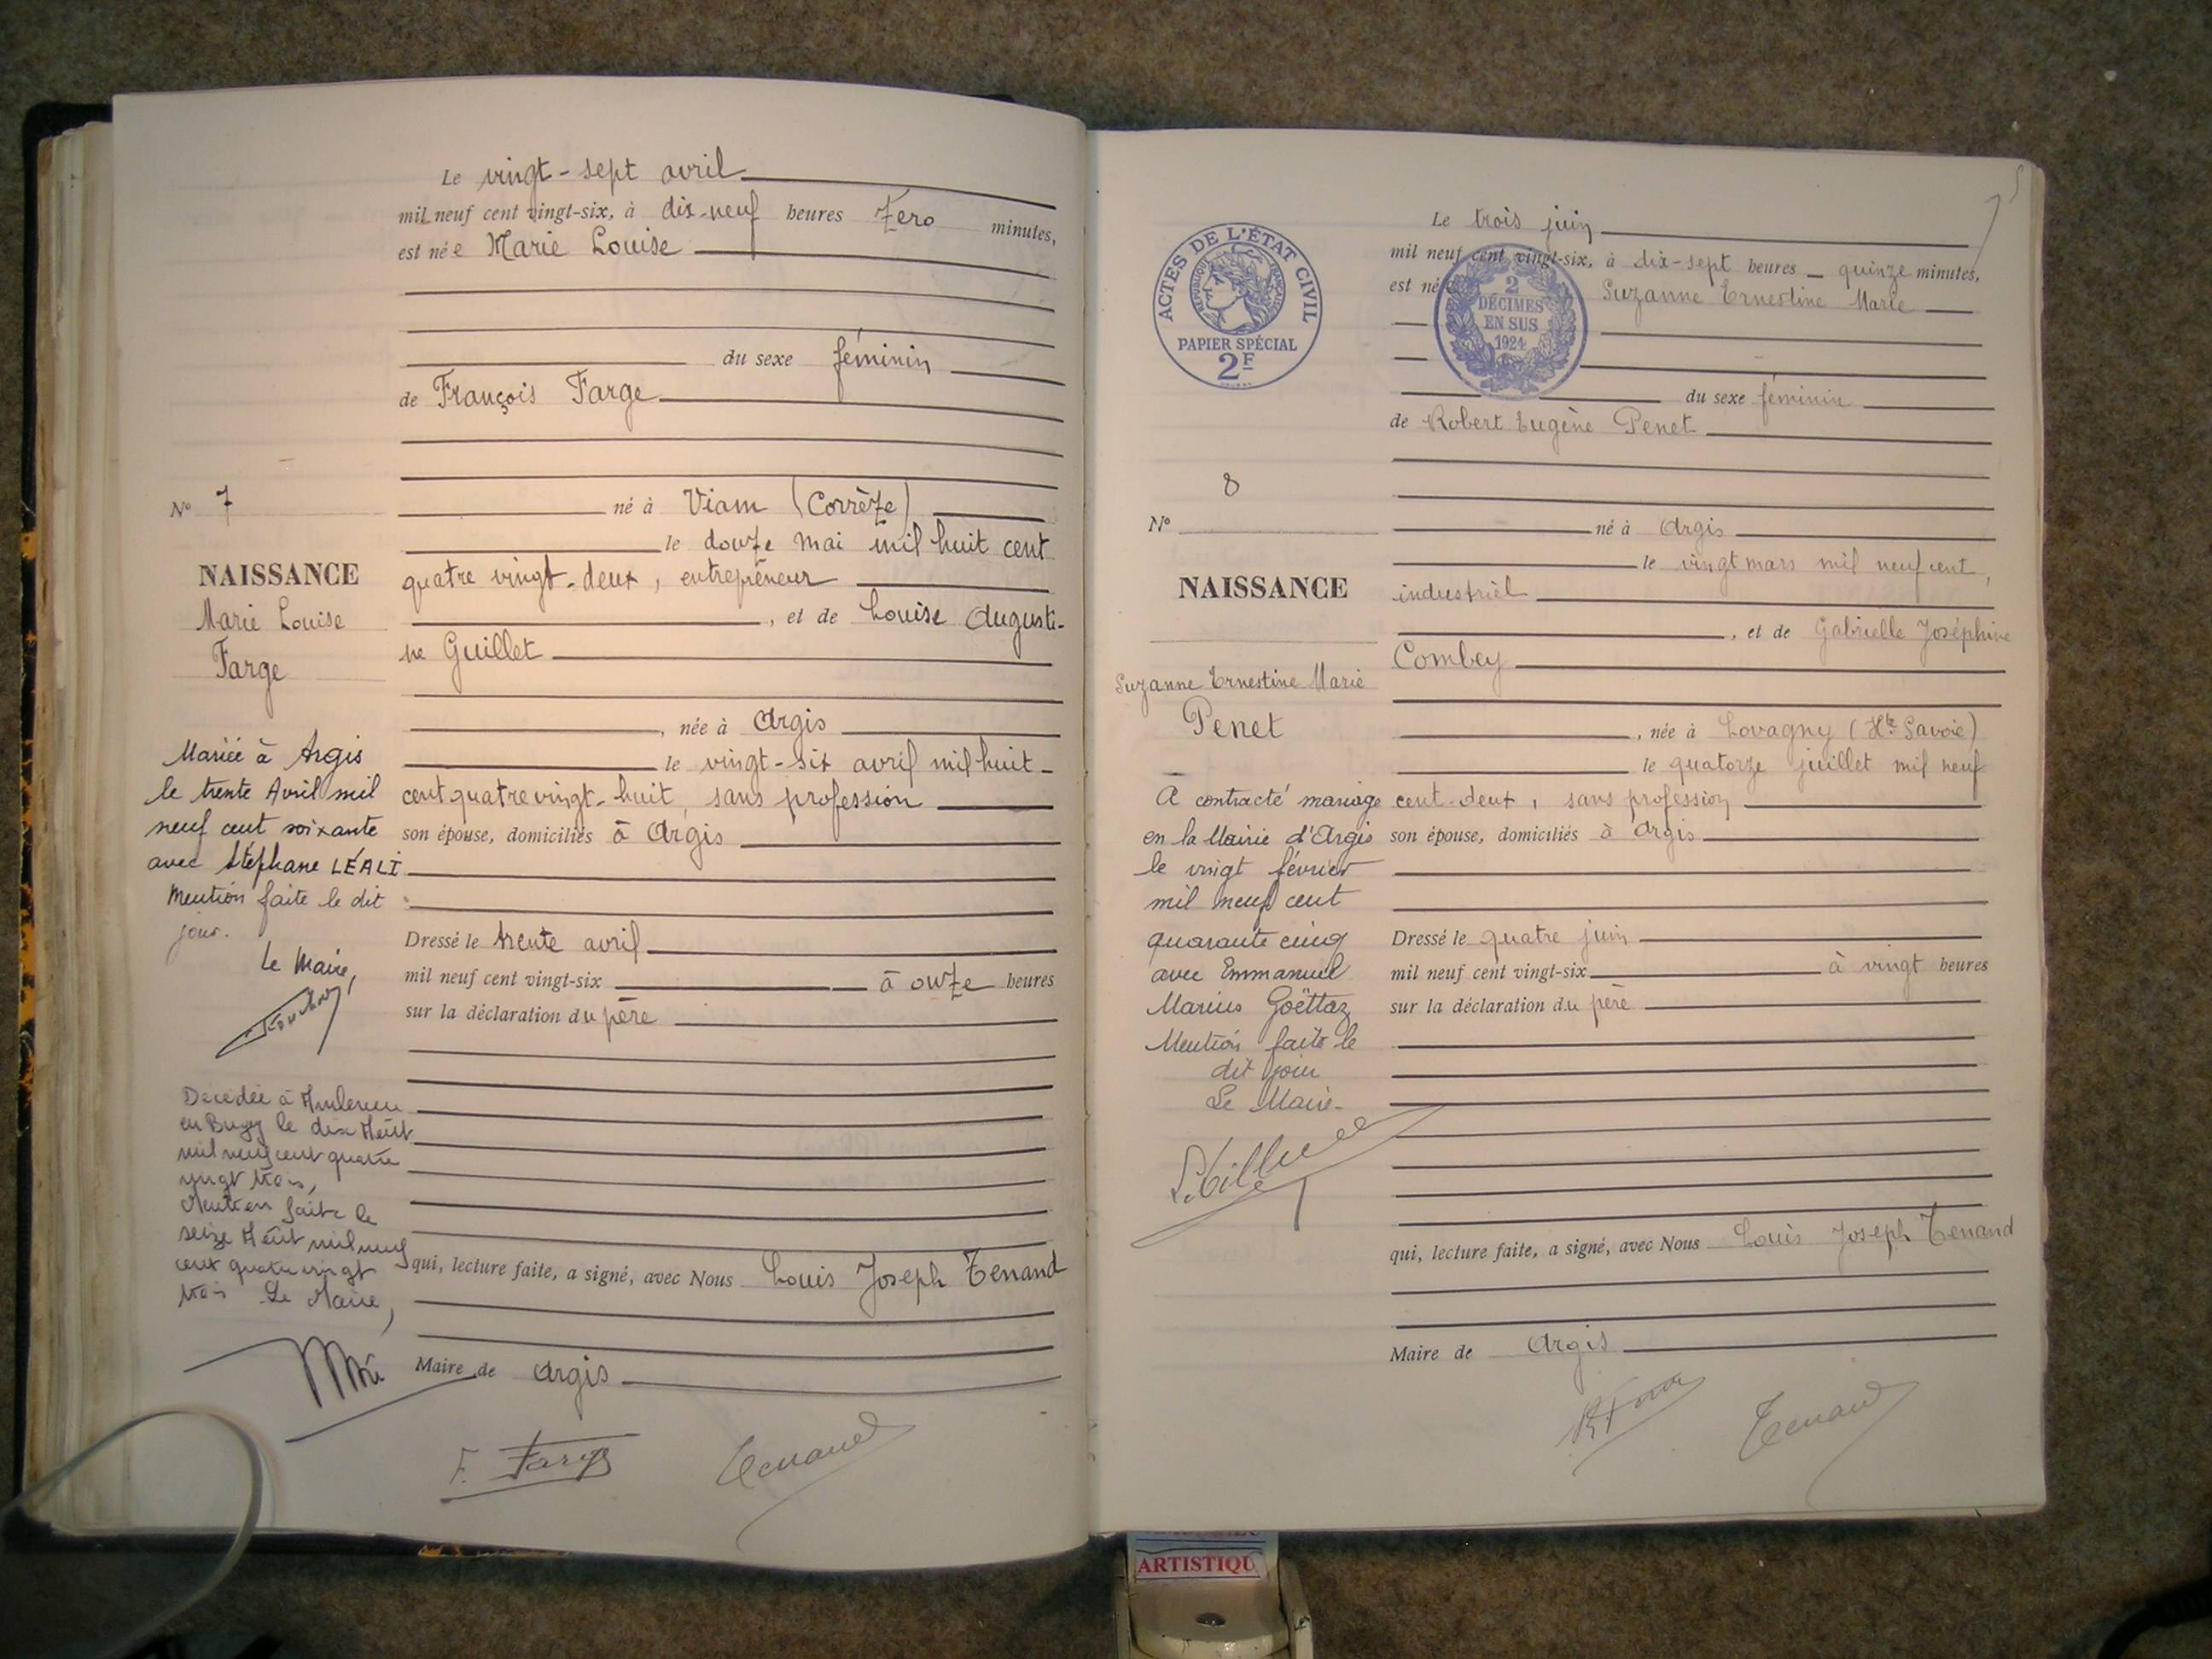 Le vingt-sept avril
mil neuf cent vingt-six, à dix-neuf heures Zero minutes,
est née Marie Louise
du sexe féminin
de François Farge
né à Viam (Corrèze)
le douze mai mil huit cent
quatre vingt-deux, entrepreneur
, et de Louise Augusti-
ne Guillet
, née à Argis
le vingt-six avril mil huit-
cent quatre vingt-huit, sans profession
son épouse, domiciliés à Argis
Dressé le trente avril
mil neuf cent vingt-six à onze heures
sur la déclaration du père
qui, lecture faite, a signé, avec Nous Louis Joseph Tenand
Maire de Argis
F. Farge Tenand
No 7
NAISSANCE
Marie Louise
Farge
Mariée à Argis
le trente Avril mil
neuf cent soixante
avec Stéphane LÉALI
Mention faite le dit
jour.
Le Maire,
Décédée à Ambérieu
en Bugey le dix Août
mil neuf cent quatre
vingt trois,
Mention faite le
seize Août mil neuf
cent quatre vingt
trois Le Maire,
ACTES DE L'ÉTAT CIVIL
RÉPUBLIQUE FRANÇAISE
PAPIER SPÉCIAL
2F
2
DÉCIMES
EN SUS
1924
Le trois juin
mil neuf cent vingt-six, à dix-sept heures quinze minutes,
est né Suzanne Ernestine Marie
du sexe féminin
de Robert Eugène Penet
né à Argis
le vingt mars mil neuf cent,
industriel
, et de Gabrielle Joséphine
Combey
, née à Lovagny (Hte Savoie)
le quatorze juillet mil neuf
cent-deux, sans profession
son épouse, domiciliés à Argis
Dressé le quatre juin
mil neuf cent vingt-six à vingt heures
sur la déclaration du père
qui, lecture faite, a signé, avec Nous Louis Joseph Tenand
Maire de Argis
Tenand
No 8
NAISSANCE
Suzanne Ernestine Marie
Penet
A contracté mariage
en la Mairie d'Argis
le vingt février
mil neuf cent
quarante cinq
avec Emmanuel
Marius Goëttaz
Mention faite le
dit jour
Le Maire-
ARTISTIQU